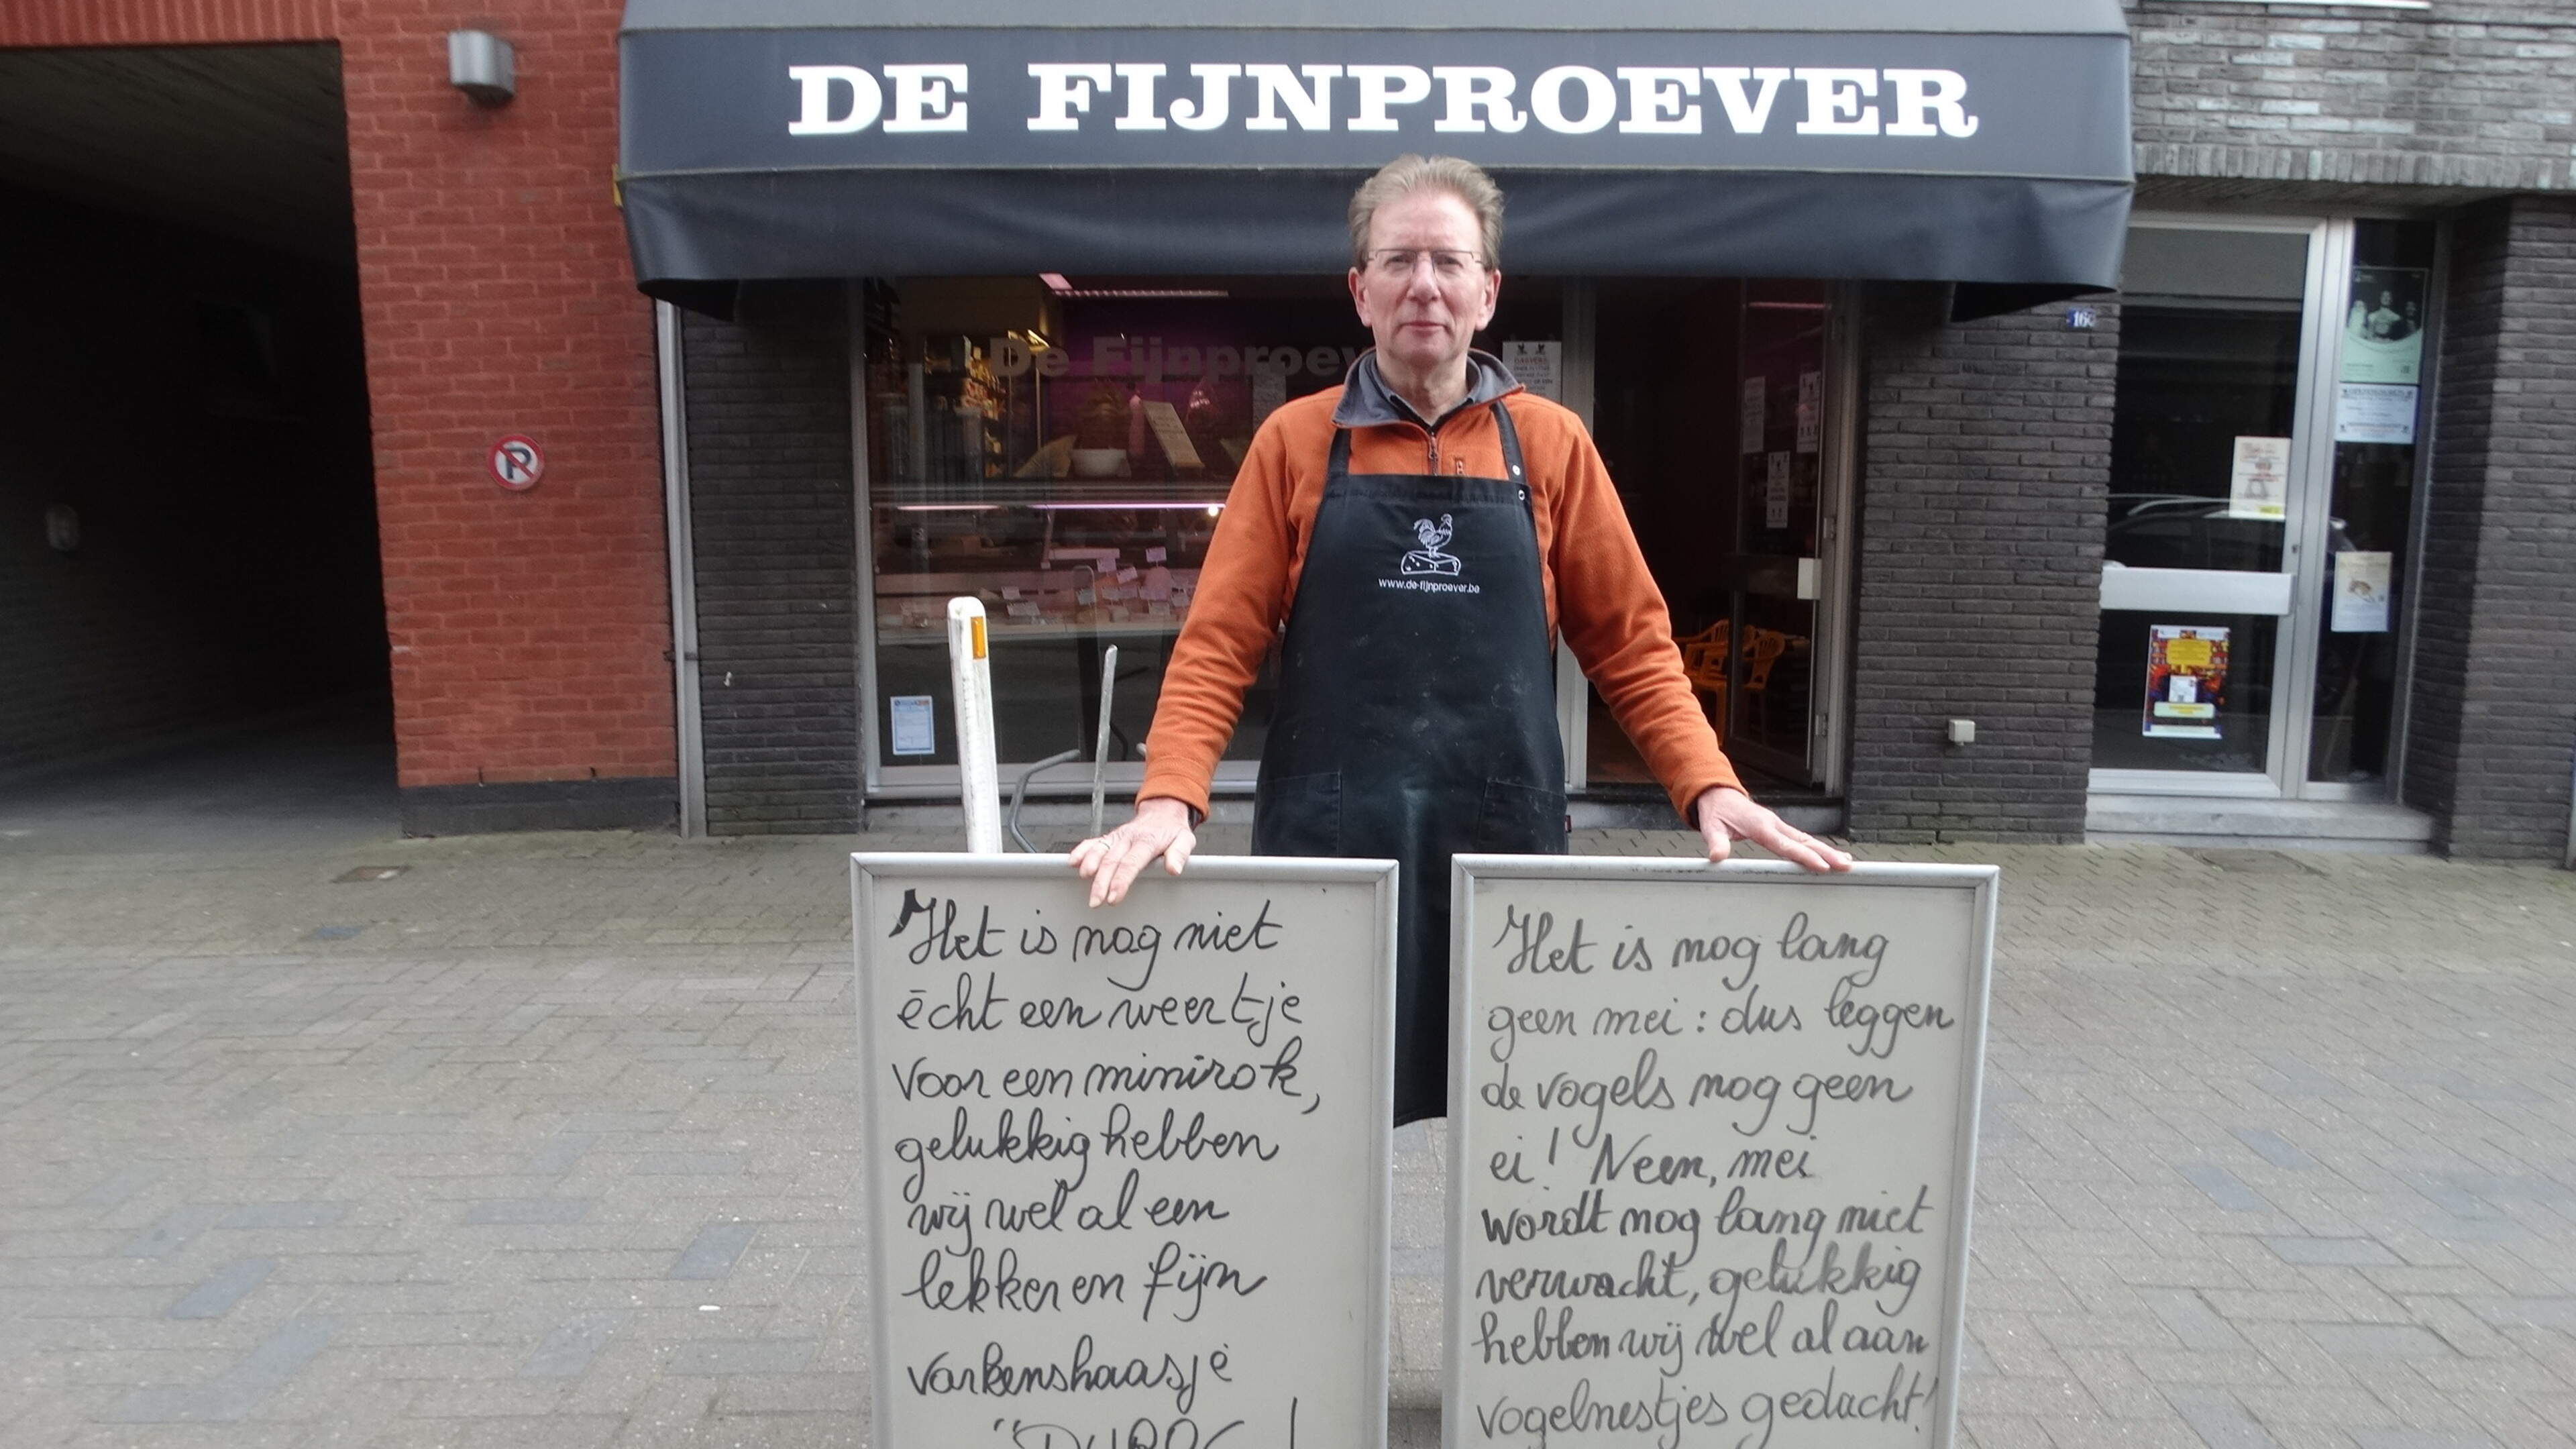 DE FIJNPROEVER
De Fijnproev
16
www.de-fijnproever.be
Het is nog niet
ēcht een weertje
voor een minirok,
gelukkig hebben
wij wel al een
lekker en fijn
varkenshaasje
Het is nog lang
geen mei : dus leggen
de vogels nog geen
ei! Neen, mei
wordt nog lang niet
verwacht, gelukkig
hebben wij wel al aan
vogelnestjes gedacht!